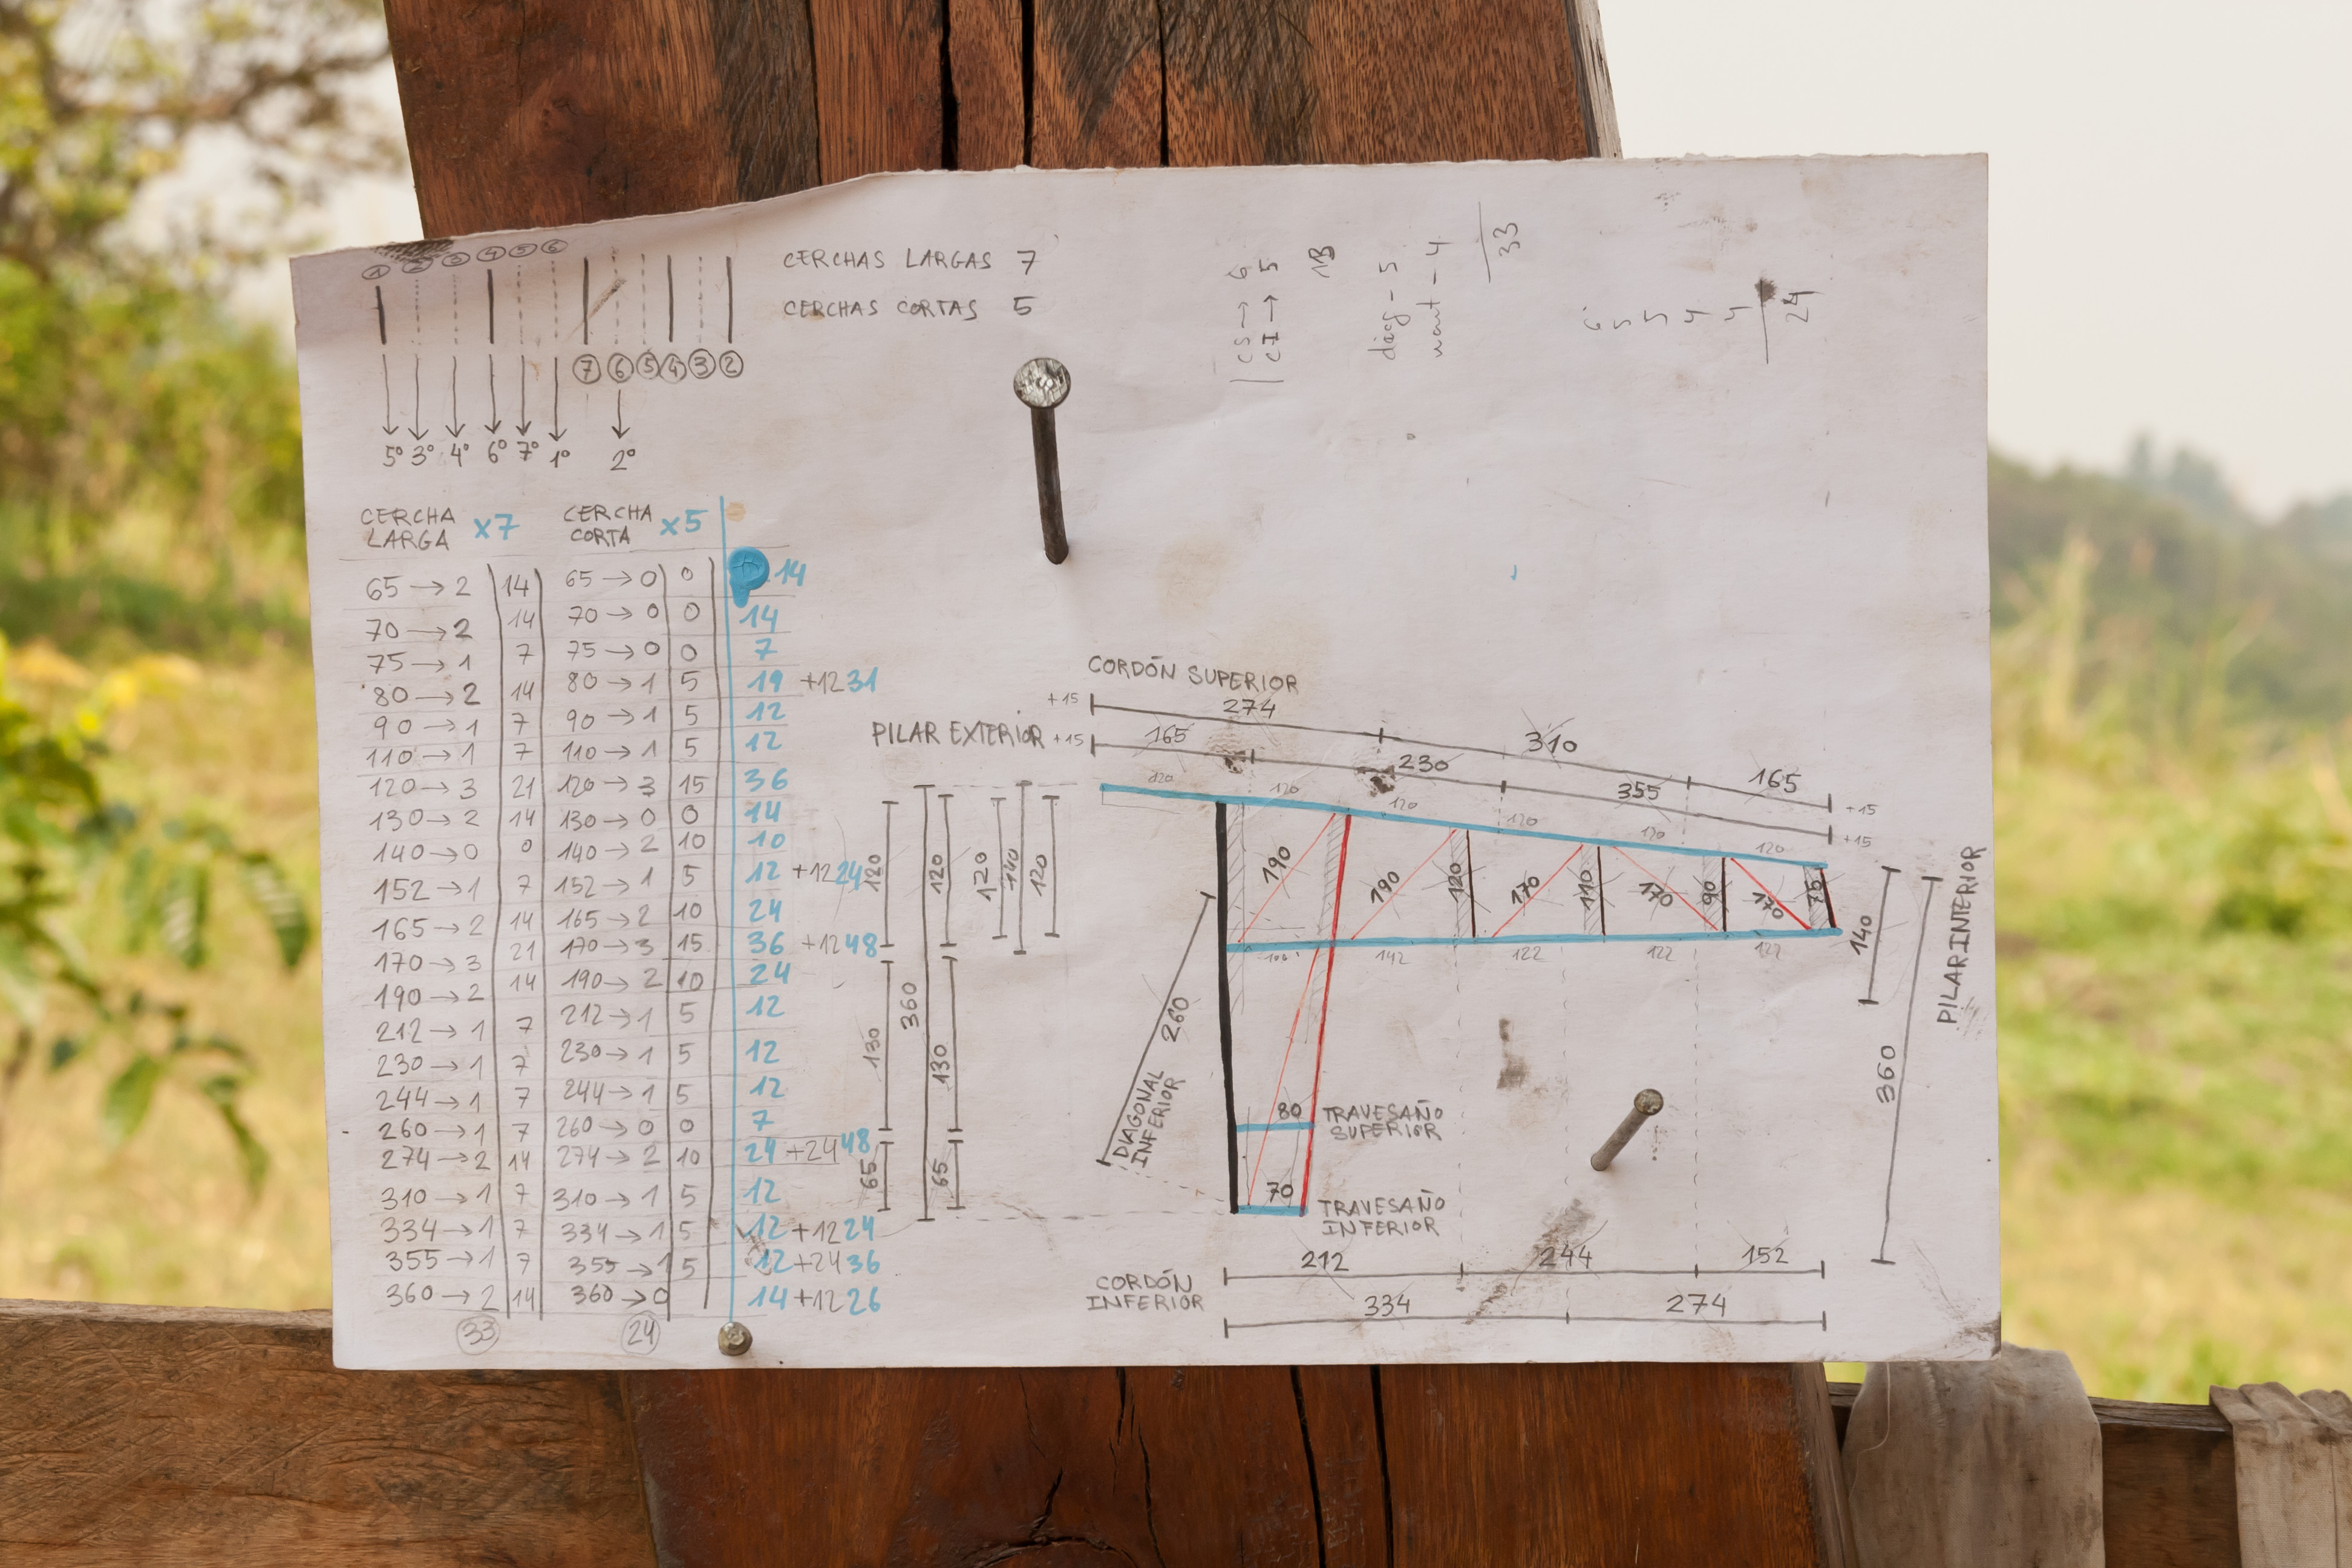 1 2 3 4 5 6
7 6 5 4 3 2
5º 3º 4º 6º 7º 1º 2º
CERCHAS LARGAS 7
CERCHAS CORTAS 5
CS → 6
CI → 5
diag - 5
mont - 4
33
6
5
5
4
4
24
CERCHA LARGA x7 CERCHA CORTA x5
65 → 2 14 65 → 0 0 14
70 → 2 14 70 → 0 0 14
75 → 1 7 75 → 0 0 7
80 → 2 14 80 → 1 5 19 +12 31
90 → 1 7 90 → 1 5 12
110 → 1 7 110 → 1 5 12
120 → 3 21 120 → 3 15 36
130 → 2 14 130 → 0 0 14
140 → 0 0 140 → 2 10 10
152 → 1 7 152 → 1 5 12 +12 24
165 → 2 14 165 → 2 10 24
170 → 3 21 170 → 3 15 36 +12 48
190 → 2 14 190 → 2 10 24
212 → 1 7 212 → 1 5 12
230 → 1 7 230 → 1 5 12
244 → 1 7 244 → 1 5 12
260 → 1 7 260 → 0 0 7
274 → 2 14 274 → 2 10 24 +24 48
310 → 1 7 310 → 1 5 12
334 → 1 7 334 → 1 5 12 +12 24
355 → 1 7 355 → 1 5 12 +24 36
360 → 2 14 360 → 0 14 +12 26
33 24
CORDÓN SUPERIOR
+15 274 310 165 +15
PILAR EXTERIOR
+15 165 230 355 +15
120 120 120 120 120 120
120 120 120 140 120
130 360 130
65 65
190 190 120 170 110 170 90 170 75
142 122 122 122
DIAGONAL INFERIOR
260
80 TRAVESAÑO SUPERIOR
70 TRAVESAÑO INFERIOR
140
360
PILAR INTERIOR
CORDÓN INFERIOR
212 244 152
334 274